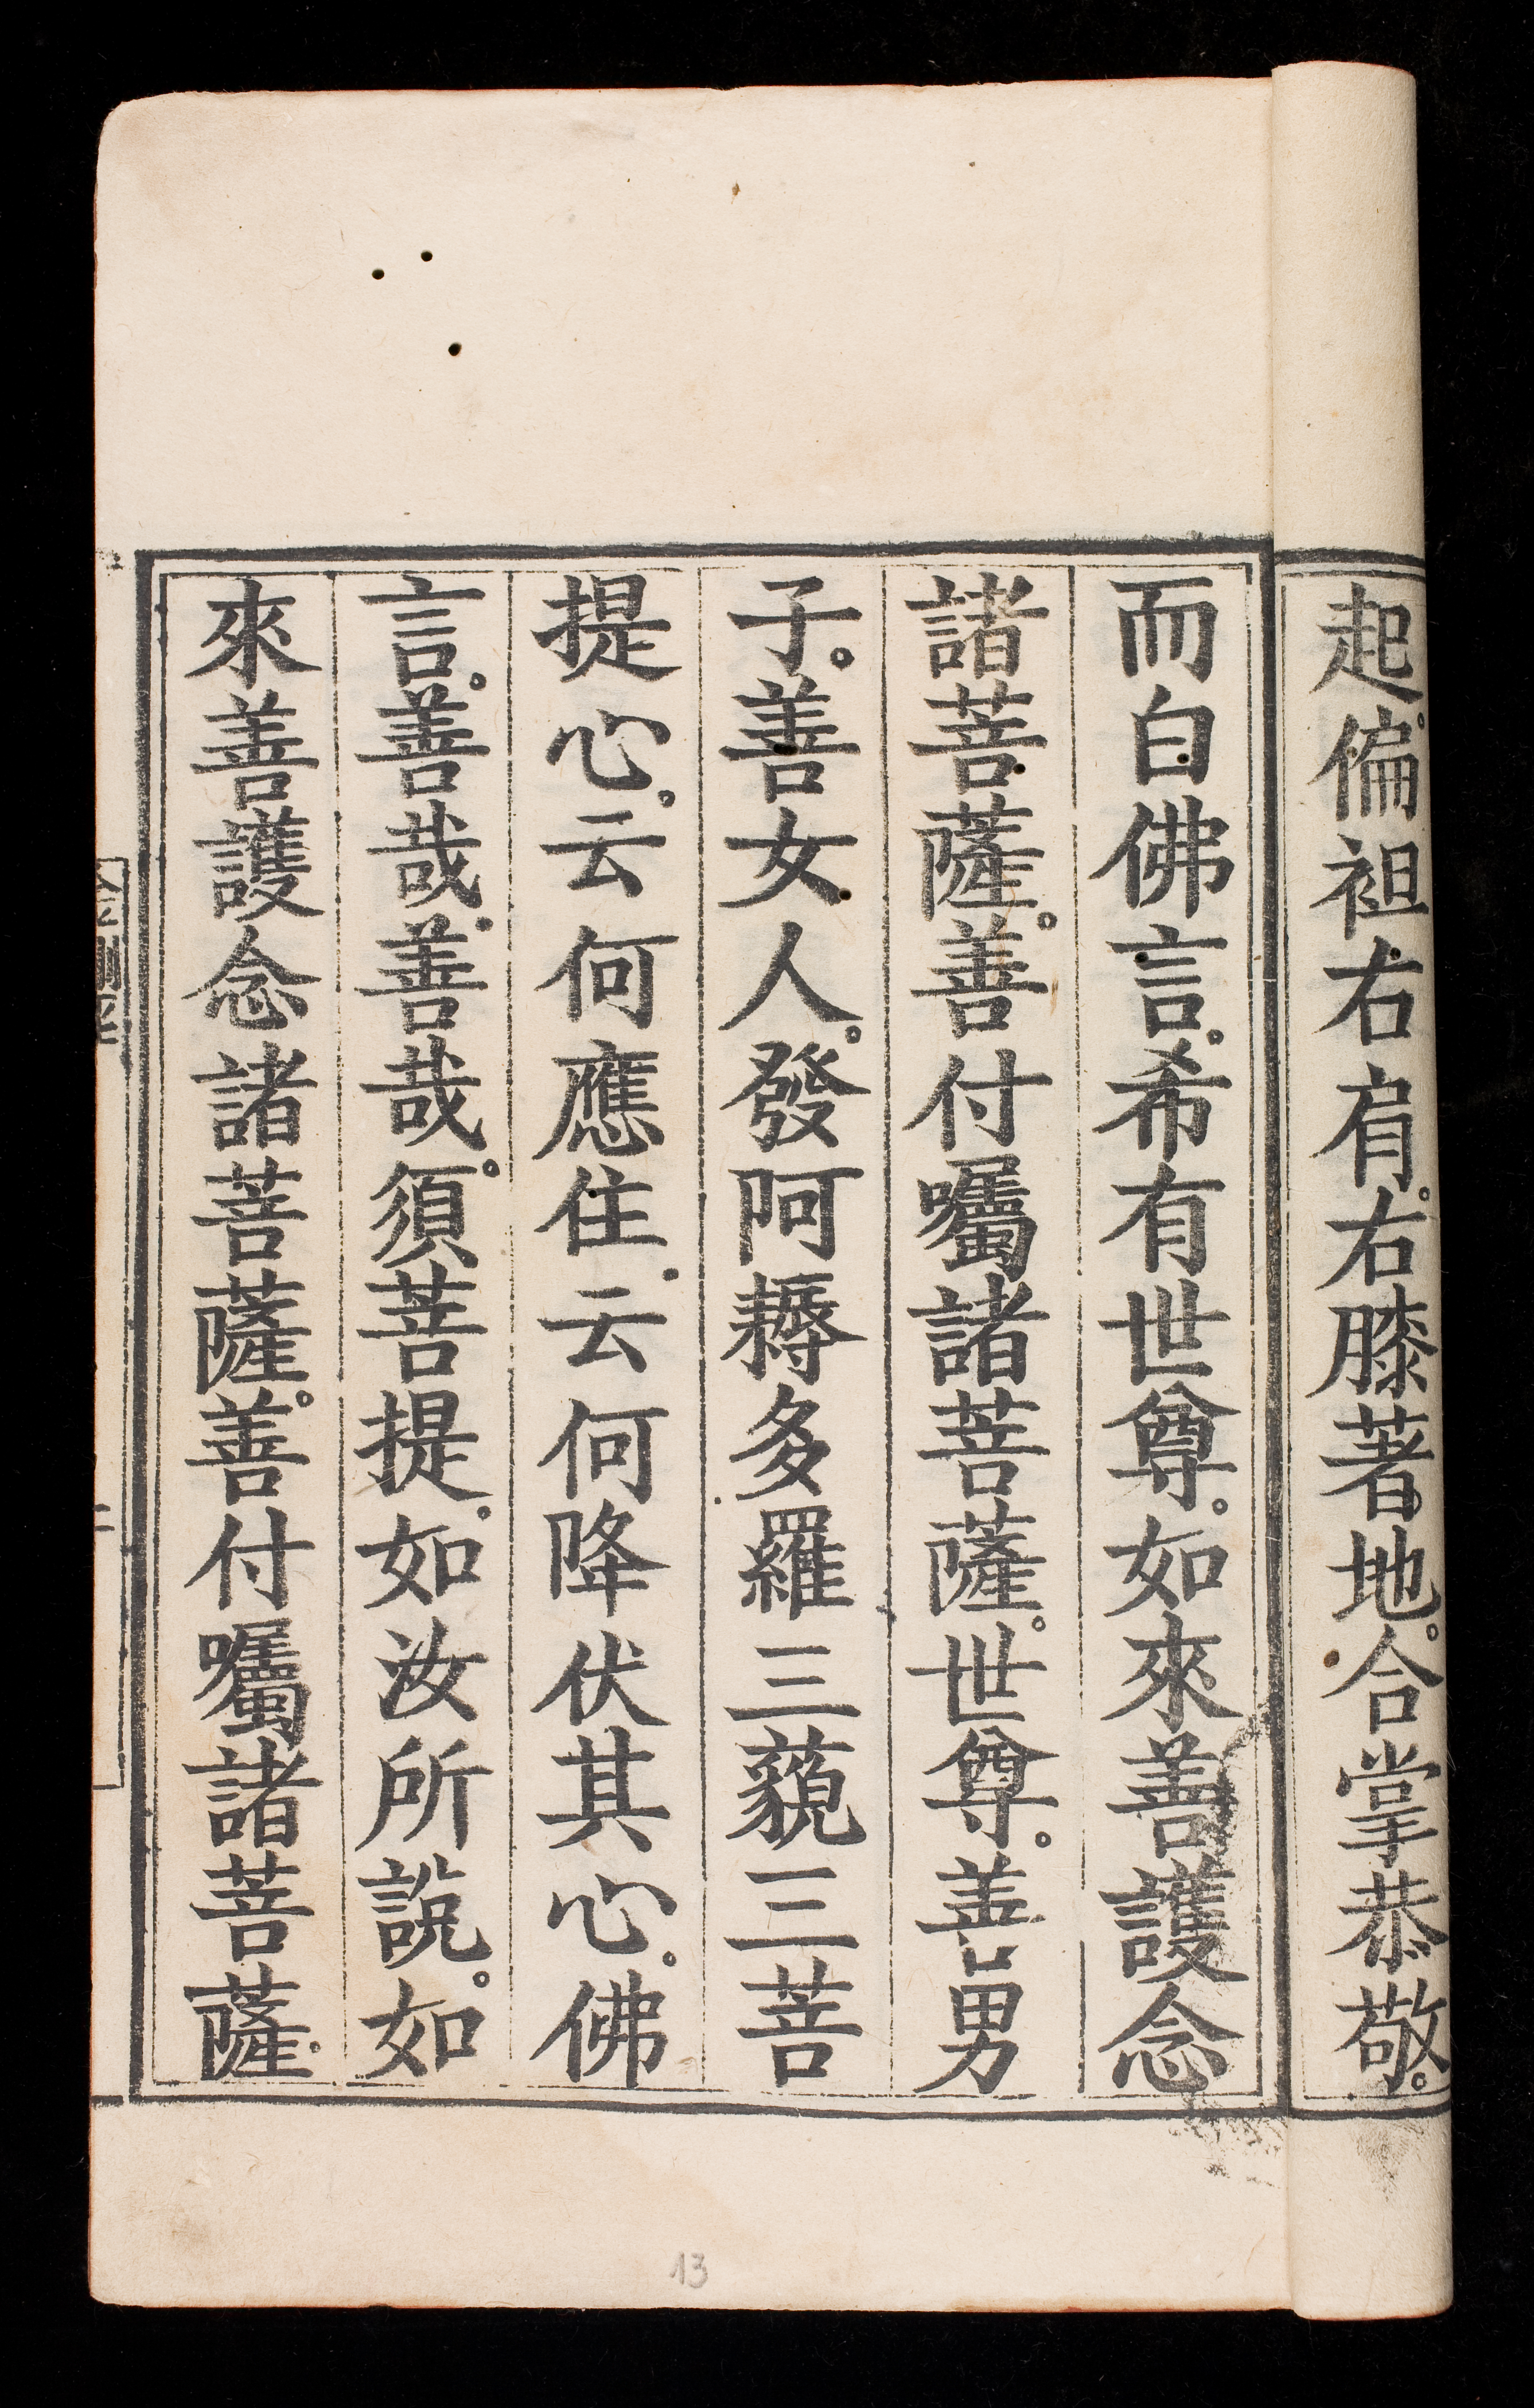 起。偏袒右肩。右膝著地。合掌恭敬。
而白佛言。希有世尊。如來善護念
諸菩薩。善付囑諸菩薩。世尊。善男
子。善女人。發阿耨多羅三藐三菩
提心。云何應住。云何降伏其心。佛
言。善哉。善哉。須菩提。如汝所說。如
來善護念諸菩薩。善付囑諸菩薩。
13